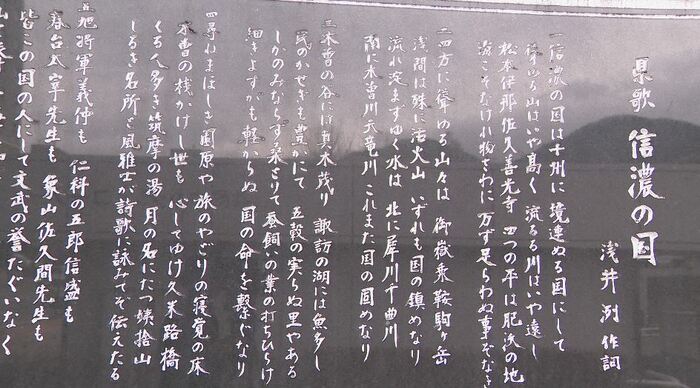 県歌 信濃の国
浅井洌 作詞
一 信濃の国は十州に 境連ぬる国にして
聳ゆる山はいや高く 流るる川はいや遠し
松本伊那佐久善光寺 四つの平は肥沃の地
海こそなけれ物さわに 万ず足らわぬ事ぞなき
二 四方に聳ゆる山々は 御嶽乗鞍駒ヶ岳
浅間は殊に活火山 いずれも国の鎮めなり
流れ淀まずゆく水は 北に犀川千曲川
南に木曾川天竜川 これまた国の固めなり
三 木曾の谷には真木茂り 諏訪の湖には魚多し
民のかせぎも豊かにて 五穀の実らぬ里やある
しかのみならず桑とりて 蚕飼いの業の打ちひらけ
細きよすがも軽からぬ 国の命を繋ぐなり
四 尋ねまほしき園原や 旅のやどりの寝覚の床
木曾の棧かけし世も 心してゆけ久米路橋
くる人多き筑摩の湯 月の名にたつ姨捨山
しるき名所と風雅士が 詩歌に詠みてぞ伝えたる
五 旭将軍義仲も 仁科の五郎信盛も
春台太宰先生も 象山佐久間先生も
皆この国の人にして 文武の誉たぐいなく